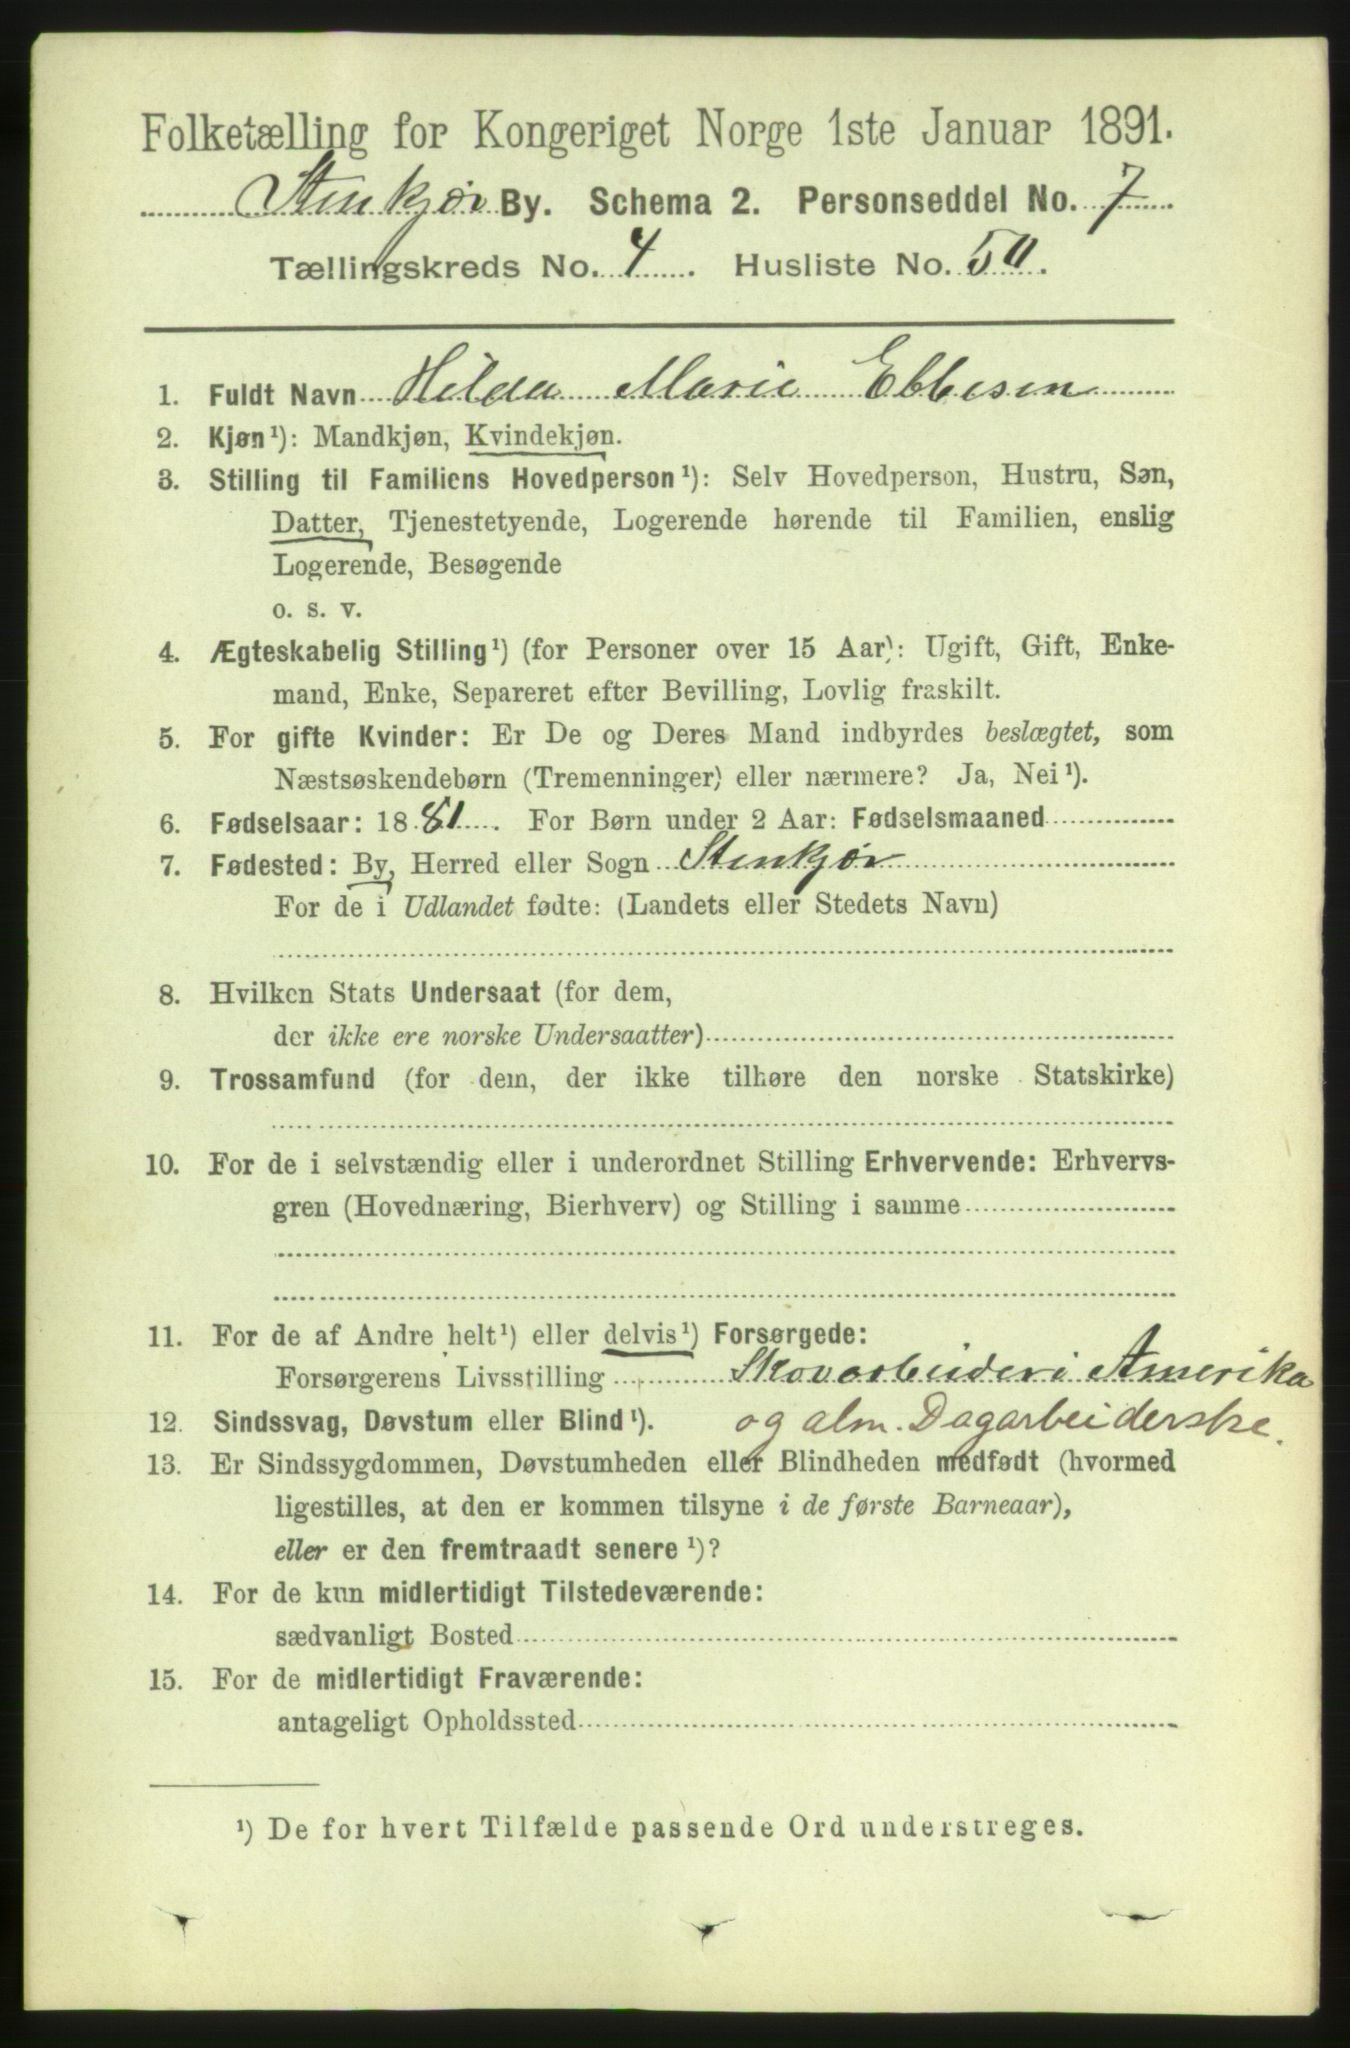 Folketælling for Kongeriget Norge 1ste Januar 1891.
Stenkjær By. Schema 2. Personseddel No. 7
Tællingskreds No. 4. Husliste No. 50.
1. Fuldt Navn Hilda Marie Ebbesen
2. Kjøn¹): Mandkjøn, Kvindekjøn.
3. Stilling til Familiens Hovedperson¹): Selv Hovedperson, Hustru, Søn,
Datter, Tjenestetyende, Logerende hørende til Familien, enslig
Logerende, Besøgende
o. s. v.
4. Ægteskabelig Stilling¹) (for Personer over 15 Aar): Ugift, Gift, Enke-
mand, Enke, Separeret efter Bevilling, Lovlig fraskilt.
5. For gifte Kvinder: Er De og Deres Mand indbyrdes beslægtet, som
Næstsøskendebørn (Tremenninger) eller nærmere? Ja, Nei¹).
6. Fødselsaar: 1881. For Børn under 2 Aar: Fødselsmaaned
7. Fødested: By, Herred eller Sogn Stenkjær
For de i Udlandet fødte: (Landets eller Stedets Navn)
8. Hvilken Stats Undersaat (for dem,
der ikke ere norske Undersaatter)
9. Trossamfund (for dem, der ikke tilhøre den norske Statskirke)
10. For de i selvstændig eller i underordnet Stilling Erhvervende: Erhvervs-
gren (Hovednæring, Bierhverv) og Stilling i samme
11. For de af Andre helt¹) eller delvis¹) Forsørgede:
Forsørgerens Livsstilling Skovarbeider i Amerika
12. Sindssvag, Døvstum eller Blind¹). og alm. Dagarbeiderske.
13. Er Sindssygdommen, Døvstumheden eller Blindheden medfødt (hvormed
ligestilles, at den er kommen tilsyne i de første Barneaar),
eller er den fremtraadt senere¹)?
14. For de kun midlertidigt Tilstedeværende:
sædvanligt Bosted
15. For de midlertidigt Fraværende:
antageligt Opholdssted
¹) De for hvert Tilfælde passende Ord understreges.